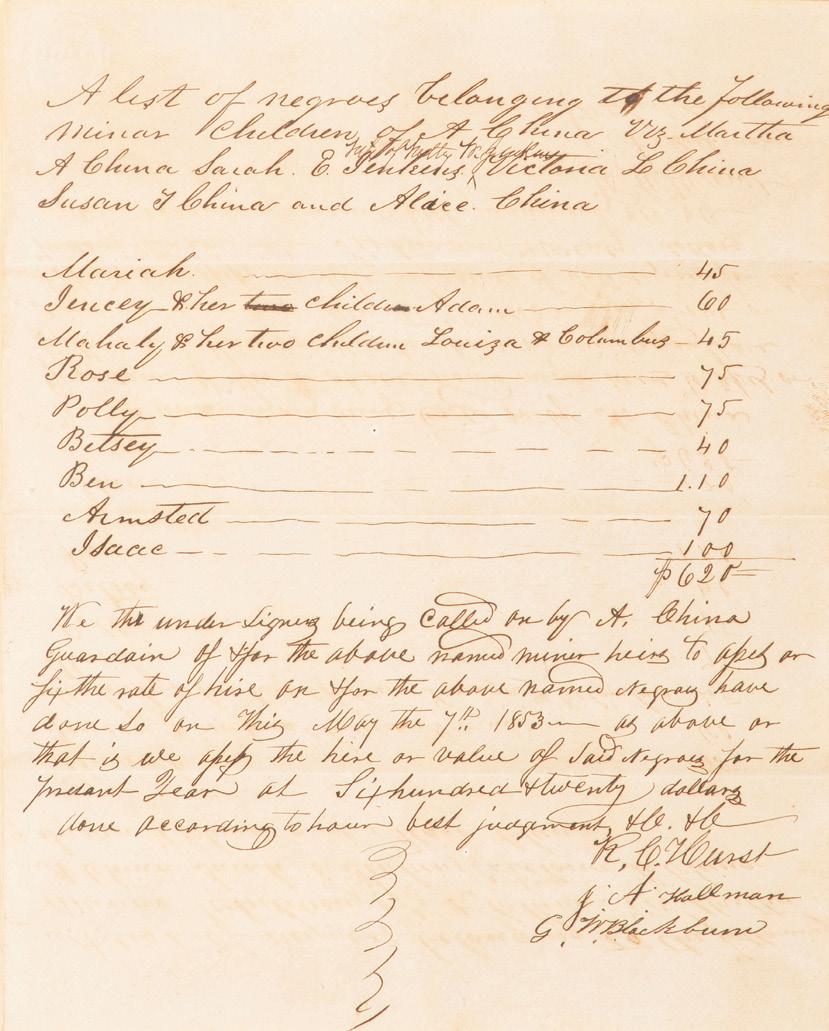 A list of negroes belonging to the following
minor children of A China Viz. Martha
A China Sarah. E. Jenkins, Victoria L China
Susan F China and Alice. China
Mariah. 45
Jencey & her two children Adam 60
Mahaly & her two children Louiza & Columbus 45
Rose 75
Polly 75
Betsey 40
Ben 1.10
Armsted 70
Isaac 100
$620
We the under signers being called on by A. China
Guardain of & for the above named miner heirs to
fix the rate of hire on & for the above named Negroes have
done so on this May the 7th. 1853 as above or
that is we the hire or value of said Negroes for the
presant Year at Six hundred & twenty dollars
done according to hour best judgment, &C. &C
R. C. Hurst
J. A. Hallman
G. W. Blackburn